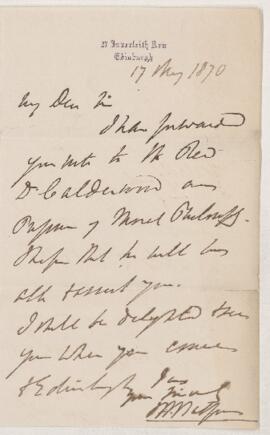 27 Inverleith Row
Edinburgh
17 May 1870
My Dear Sir
I have forwarded
your note to the Rev
Dr Calderwood our
Professor of Moral Philosophy.
I hope that he will be
able to assist you.
I shall be delighted to see
you when you come
to Edinburgh